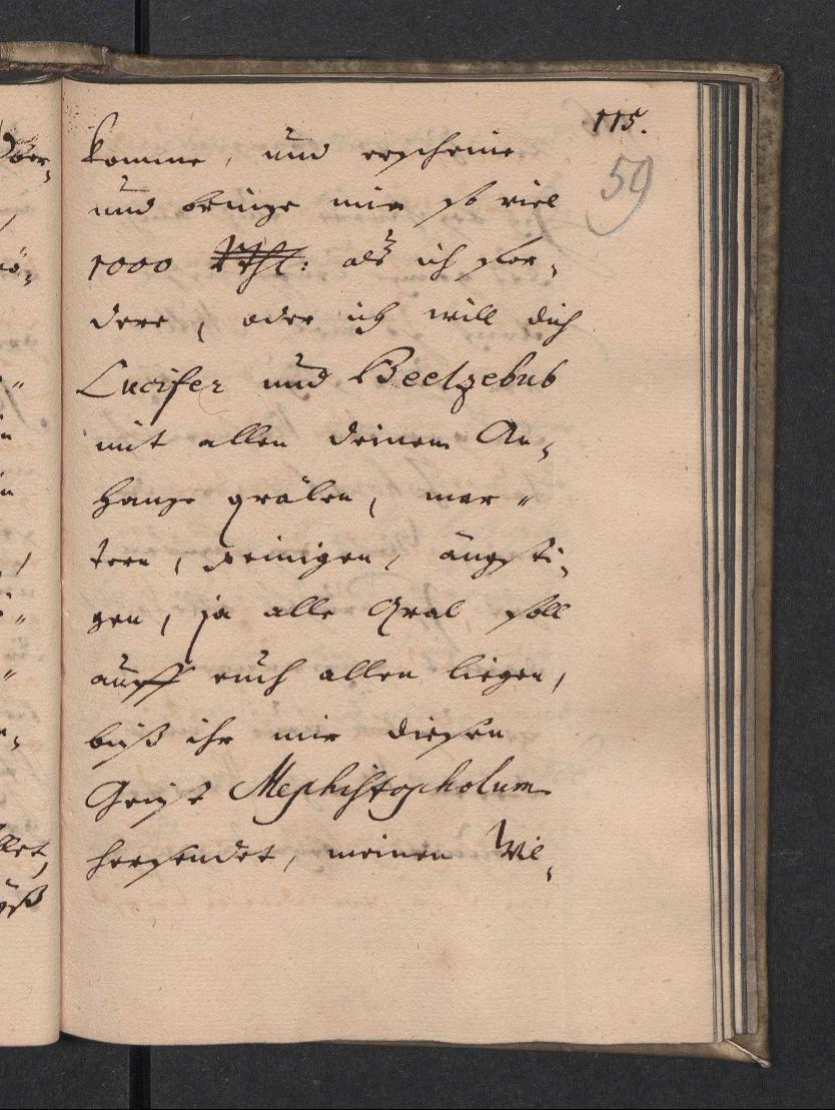 115.
59
komme, und erscheine
und bringe mir so viel
1000 Rthl: als ich for,
dere, oder ich will dich
Lucifer und Beelzebub
mit allen deinem An,
hange qvälen, mar "
tern, peinigen, ängsti,
gen, ja alle Qval soll
auff euch allen liegen,
biß ihr mir diesen
Geist Mephistopholum
hersendet, meinen Wil,